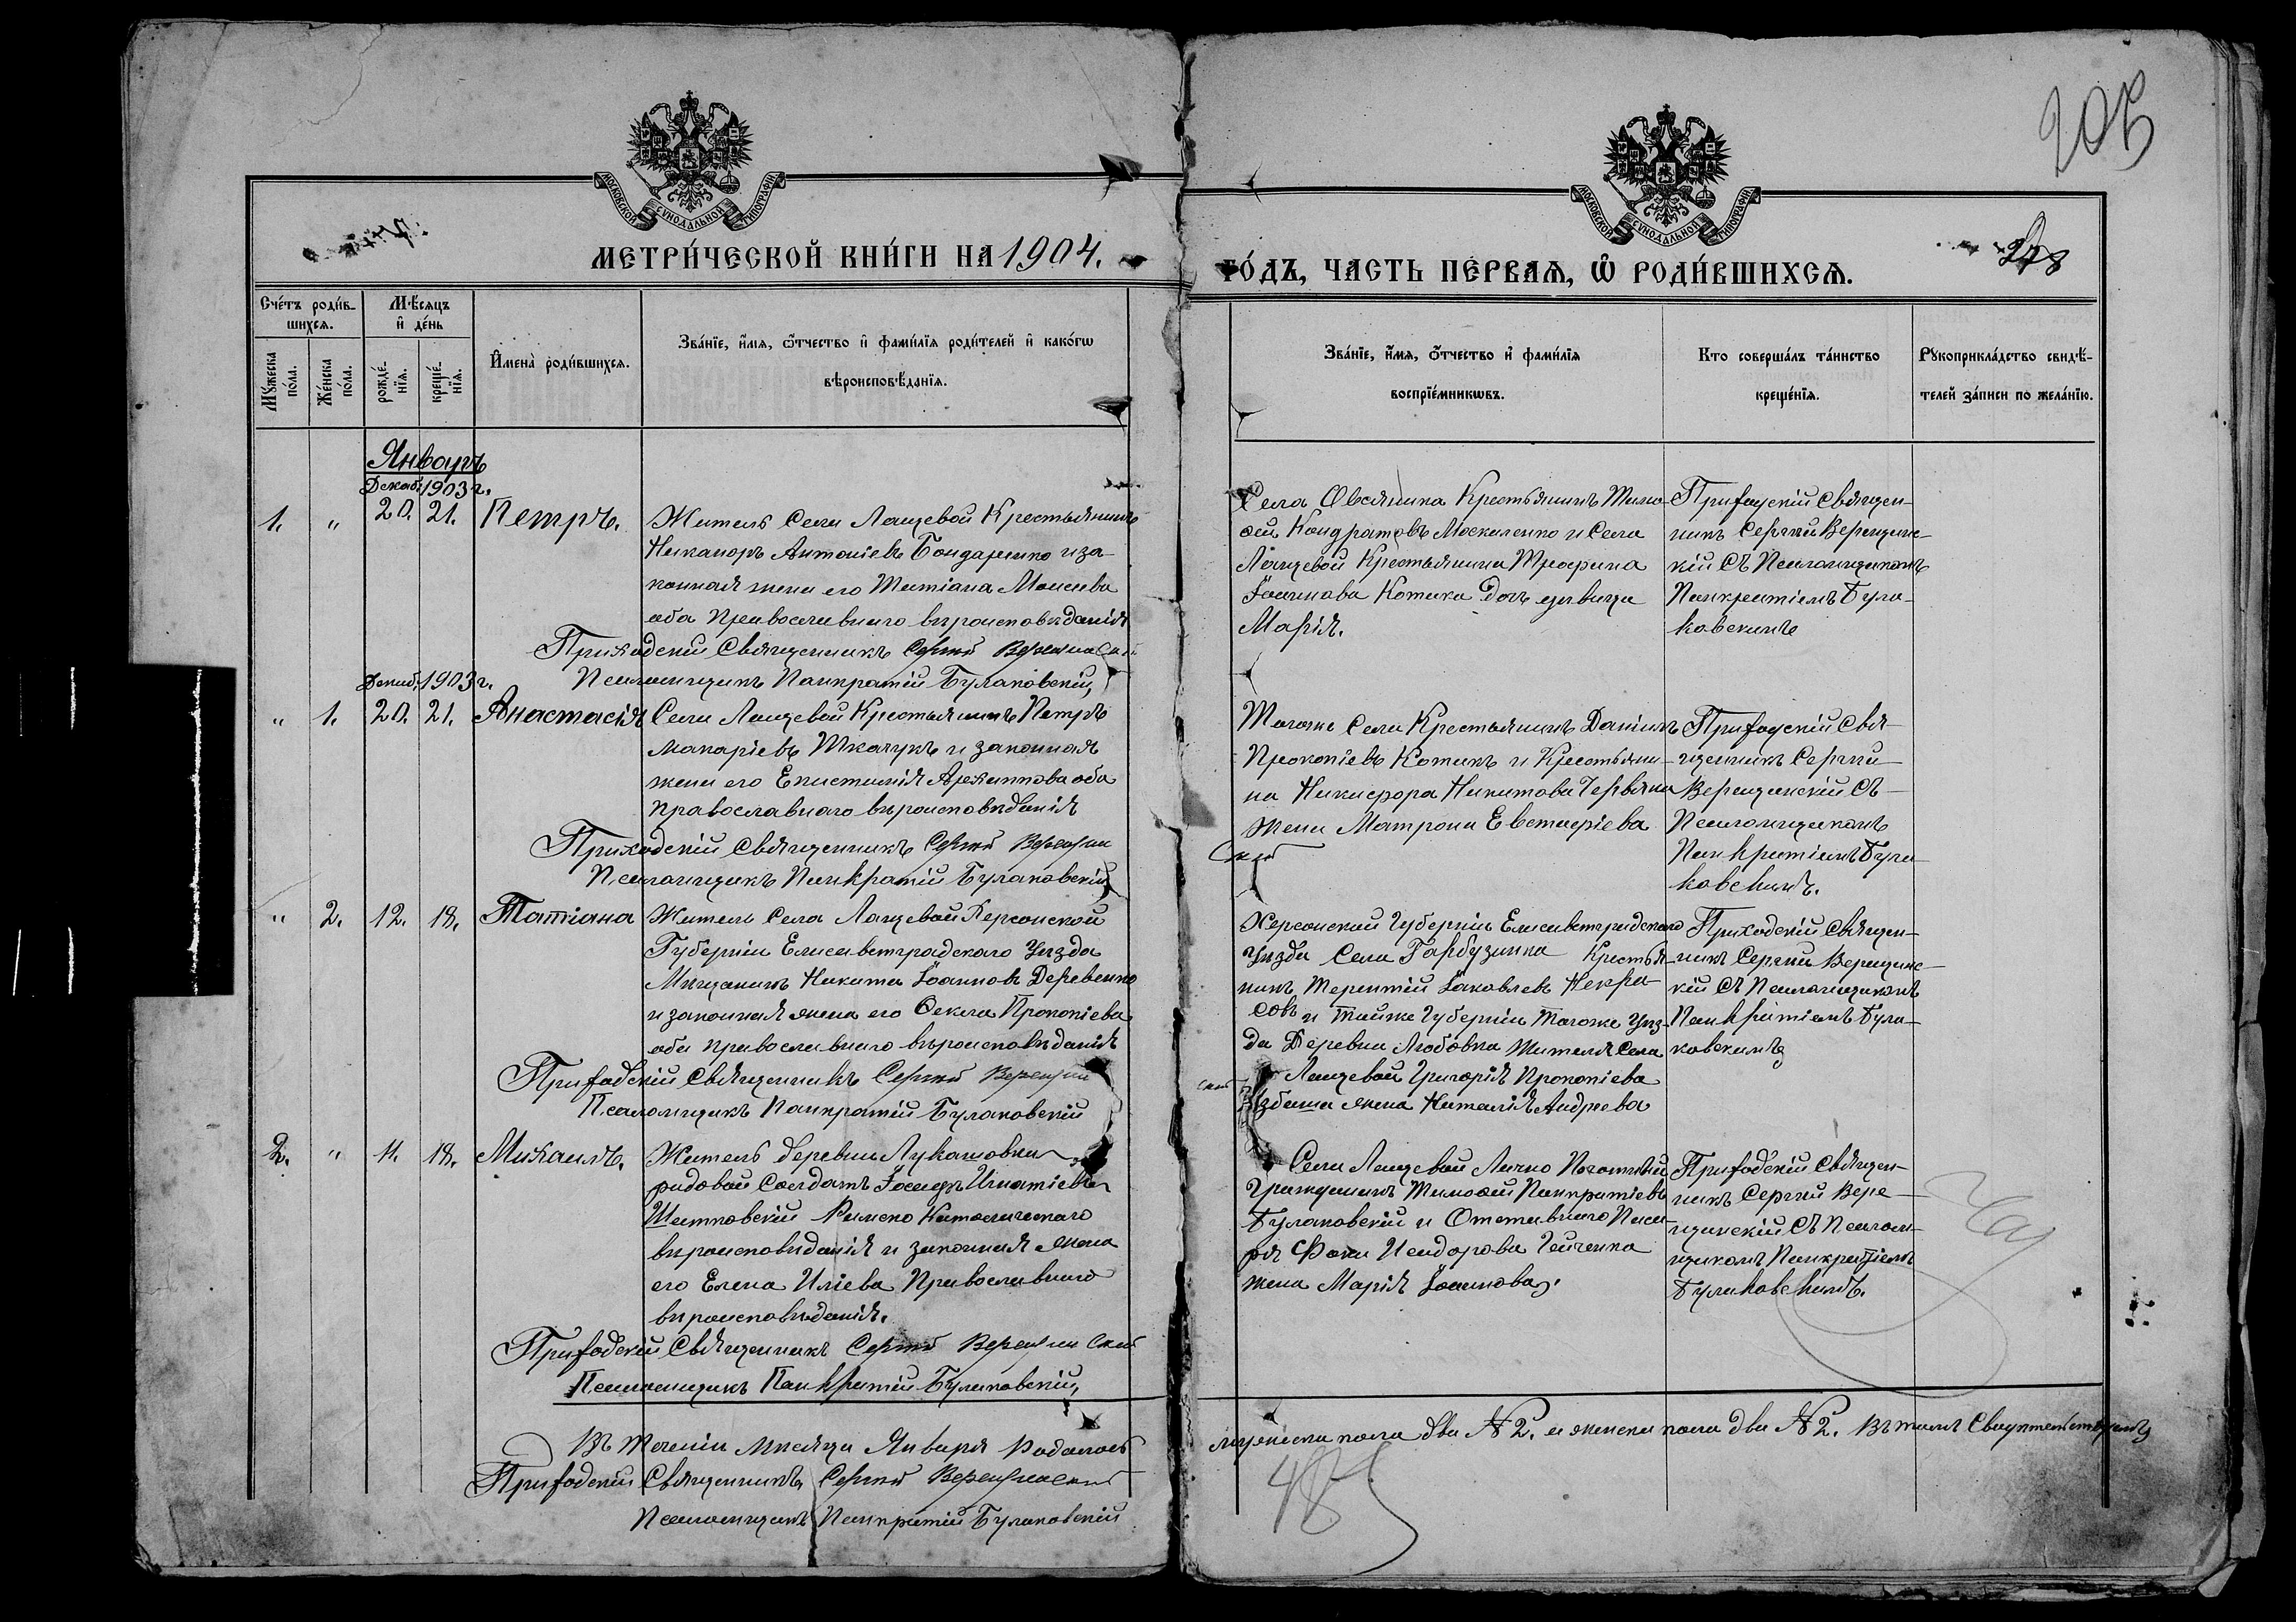 205
МОСКОВСКОЙ СѴНОДАЛЬНОЙ ТИПОГРАФІИ
МОСКОВСКОЙ СѴНОДАЛЬНОЙ ТИПОГРАФІИ
МЕТРИ́ЧЕСКОЙ КНИ́ГИ НА 1904.
ГО́ДЪ, ЧАСТЬ ПЕРВАѦ, Ѿ РОДИ́ВШИХСѦ.
Сче́тъ роди́в-
шихсѧ.
Мѣ́сѧцъ
и҆ де́нь
Мꙋ́жеска
по́ла.
Же́нска
по́ла.
рожде́-
нїѧ.
креще́-
нїѧ.
И҆мена̀ роди́вшихсѧ.
Зва́нїе, и҆́мѧ, ѻ҆́тчество и҆ фами́лїѧ роди́телей и҆ како́гѡ
вѣроисповѣ́данїѧ.
Зва́нїе, и҆́мѧ, ѻ҆́тчество и҆ фами́лїѧ
воспрїе́мникѡвъ.
Кто совершалъ та́инство
креще́нїѧ.
Рꙋкоприкла́дство свидѣ́-
телей за́писи по жела́нїю.
Январь
Декаб. 1903 г.
1. " 20. 21. Петръ.
Житель Села Лащевой Крестьянинъ
Никаноръ Антоніевъ Бондаренко и за-
конная жена его Татіана Моисеева
оба Православнаго вѣроисповѣданія
Приходскій Священникъ Сергій Верещинскій
Псаломщикъ Панкратій Булаковскій
Села Овсяника Крестьянинъ Тимо-
ѳей Кондратовъ Москаленко и Села
Лащевой Крестьянина Трофима
Іоаннова Котика дочь дѣвица
Марія.
Приходскій Священ-
никъ Сергій Верещинс-
кій съ Псаломщикомъ
Панкратіемъ Була-
ковскимъ
Декаб. 1903 г.
" 1. 20. 21. Анастасія
Села Лащевой Крестьянинъ Петръ
Макаріевъ Ткачукъ и законная
жена его Епистимія Архиппова оба
Православнаго вѣроисповѣданія
Приходскій Священникъ Сергій Верещин
скій
Псаломщикъ Панкратій Булаковскій
Тогоже Села Крестьянинъ Даніилъ
Прокопіевъ Котикъ и Крестьяни-
на Никифора Никитова Червяка
жена Матрона Евстафіева
Приходскій Свя-
щенникъ Сергій
Верещинскій съ
Псаломщикомъ
Панкратіемъ Була-
ковскимъ.
" 2. 12. 18. Татіана
Житель Села Лащевой Херсонской
Губерніи Елисаветградскаго Уѣзда
Мѣщанинъ Никита Іоанновъ Деревенко
и законная жена его Ѳекла Прокопіева
оба Православнаго вѣроисповѣданія
Приходскій Священникъ Сергій Верещин
скій
Псаломщикъ Панкратій Булаковскій
Херсонской Губерніи Елисаветградскаго
Уѣзда Села Гарбузинка Крестья-
нинъ Терентій Іаковлевъ Некра
совъ и Тойже Губерніи Тогоже Уѣз-
да Деревни Любовка Жителя Села
Лащевой Григорія Прокопіева
жена Наталія Андреева
Приходскій Священ-
никъ Сергій Верещинс-
кій съ Псаломщикомъ
Панкратіемъ Була-
ковскимъ
2. " 11. 18. Михаилъ.
Житель деревни Лукашовки
рядовой Солдатъ Іосифъ Игнатіевъ
Шатковскій Римско Католическаго
вѣроисповѣданія и законная жена
его Елена Иліева Православнаго
вѣроисповѣданія.
Приходскій Священникъ Сергій Верещинскій
Псаломщикъ Панкратій Булаковскій
Села Лащевой Лично Почетный
Гражданинъ Тимоѳей Панкратіевъ
Булаковскій и Отставнаго Писа-
ря Фоки Исидорова Гейченка
жена Марія Іоаннова.
Приходскій Священ-
никъ Сергій Вере-
щинскій съ Псалом-
щикомъ Панкратіемъ
Булаковскимъ.
Въ теченіи Мѣсяца Января Родилось мужеска пола два № 2. и женска пола два № 2. Въ томъ Свидѣтельствуемъ
Приходскій Священникъ Сергій Верещинскій
Псаломщикъ Панкратій Булаковскій